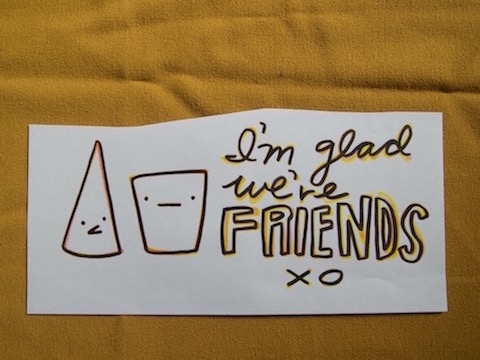 I'm glad
we're
FRIENDS
XO